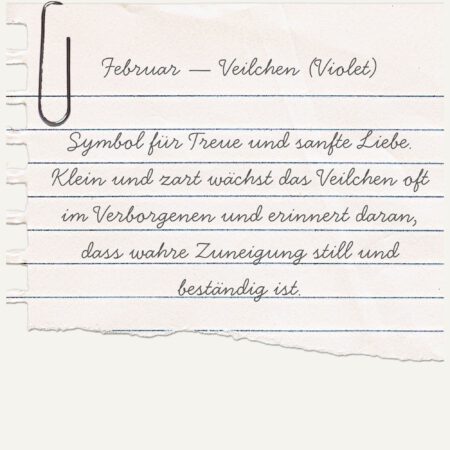 Februar — Veilchen (Violet)
Symbol für Treue und sanfte Liebe.
Klein und zart wächst das Veilchen oft
im Verborgenen und erinnert daran,
dass wahre Zuneigung still und
beständig ist.